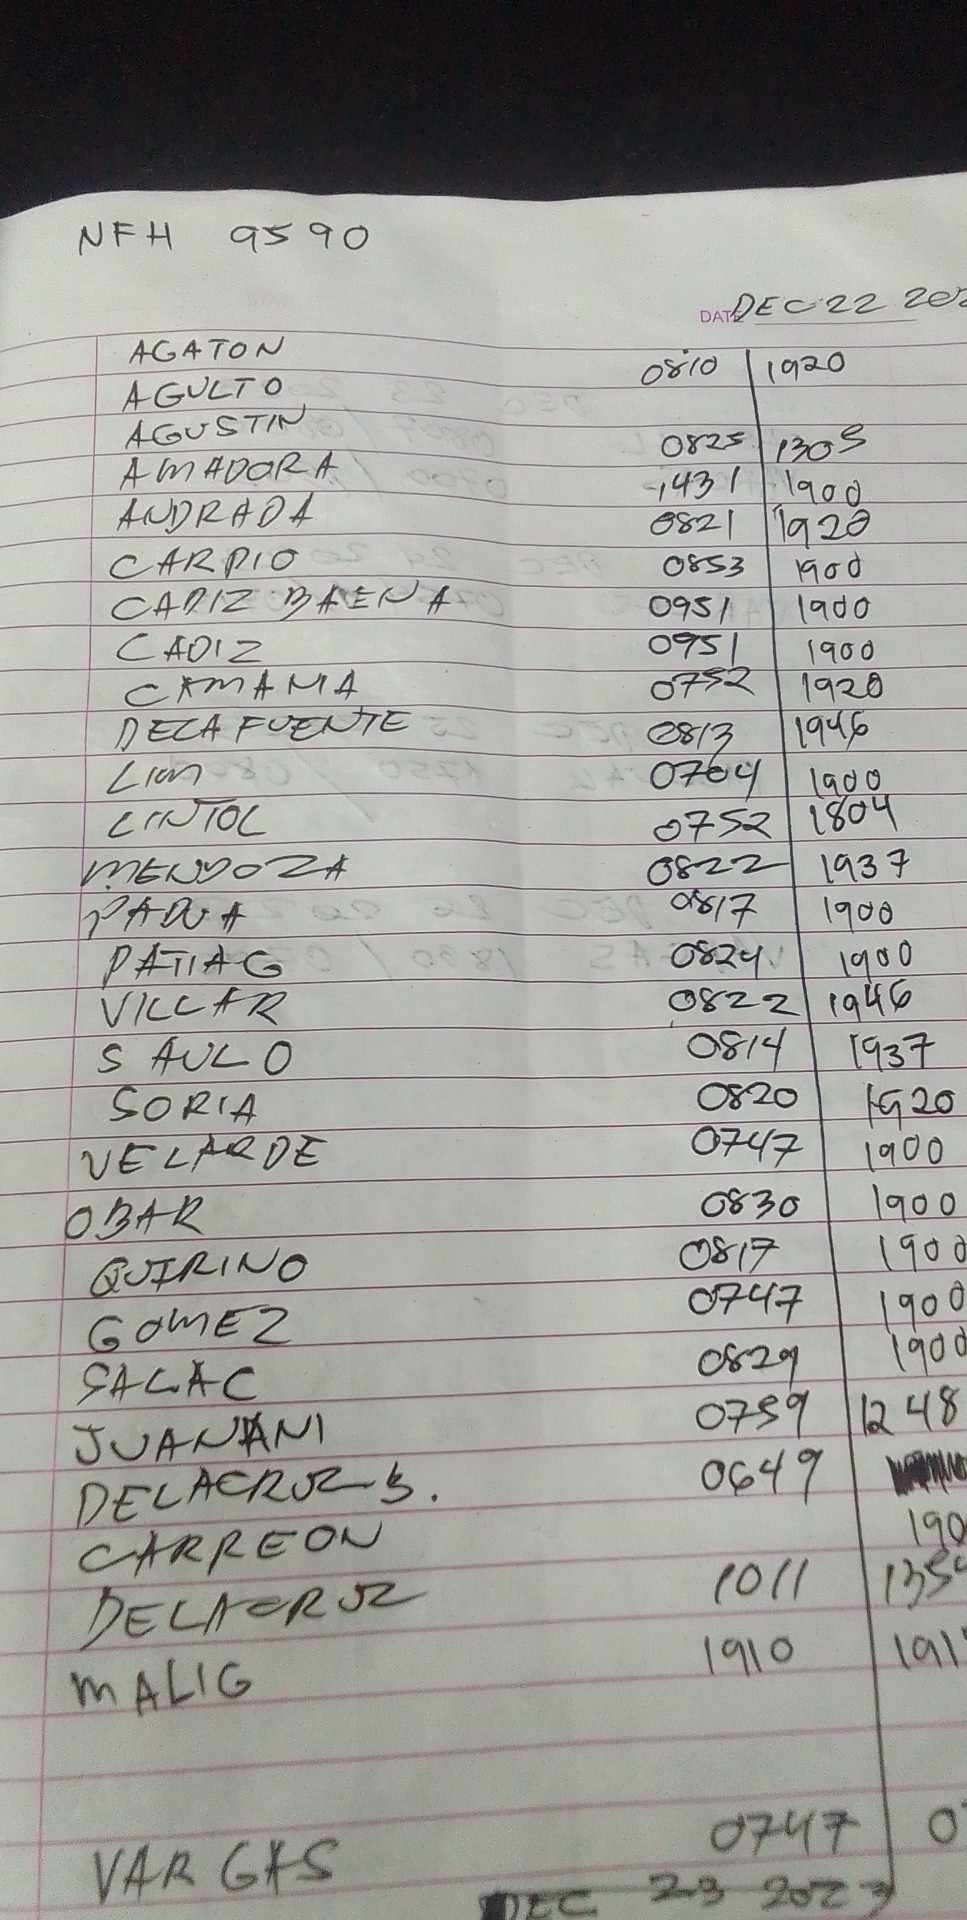 NFH 9590
DATE DEC 22 202
AGATON 0810 1920
AGULTO
AGUSTIN 0825 1305
AMADORA 1431 1900
ANDRADA 0821 1920
CARPIO 0853 1900
CADIZ BAENA 0951 1900
CADIZ 0951 1900
CAMANIA 0752 1920
DECAFUENTE 0813 1946
LIM 0704 1900
LINTOL 0752 1804
MENDOZA 0822 1937
PADUA 0817 1900
PATIAG 0824 1900
VILLAR 0822 1946
SAULO 0814 1937
SORIA 0820 1920
VELARDE 0747 1900
OBAR 0830 1900
QUIRINO 0817 1900
GOMEZ 0747 1900
SALAC 0829 1900
JUANANI 0759 1248
DELACRUZ B. 0649
CARREON 190
DELACRUZ 1011 135
MALIG 1910 191
VARGAS 0747 0
DEC 23 2023